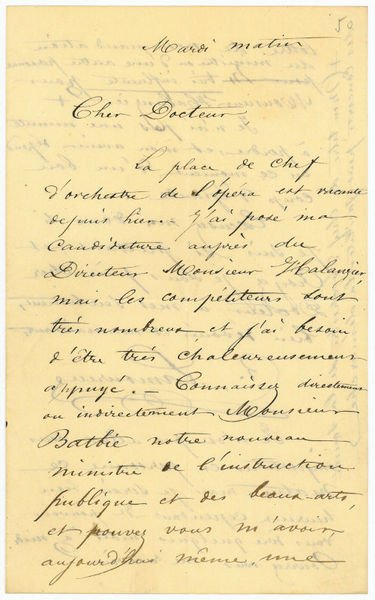 50
Mardi matin
Cher Docteur
La place de chef
d'orchestre de l'opera est vacante
depuis hier. - J'ai posé ma
candidature auprès du
Directeur Monsieur Halanzier,
mais les compétiteurs sont
très nombreux et j'ai besoin
d'être très chaleureusement
appuyé. - Connaissez directement
ou indirectement Monsieur
Batbie notre nouveau
ministre de l'instruction
publique et des beaux arts,
et pouvez vous m'avoir,
aujourd'hui même une